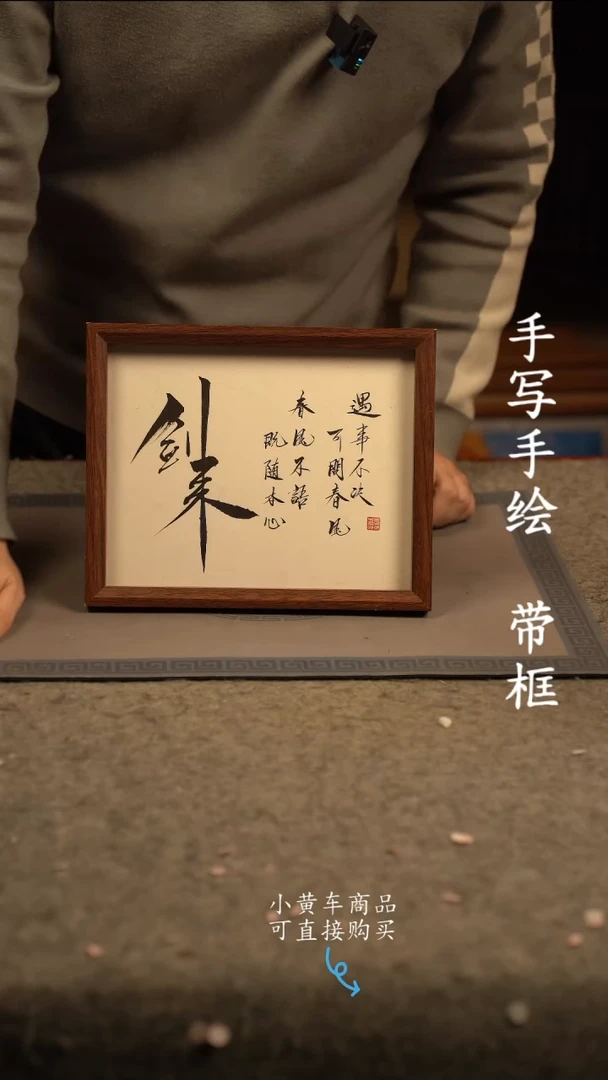 剑来
遇事不决
可问春风
春风不语
既随本心
手写手绘 带框
小黄车商品
可直接购买